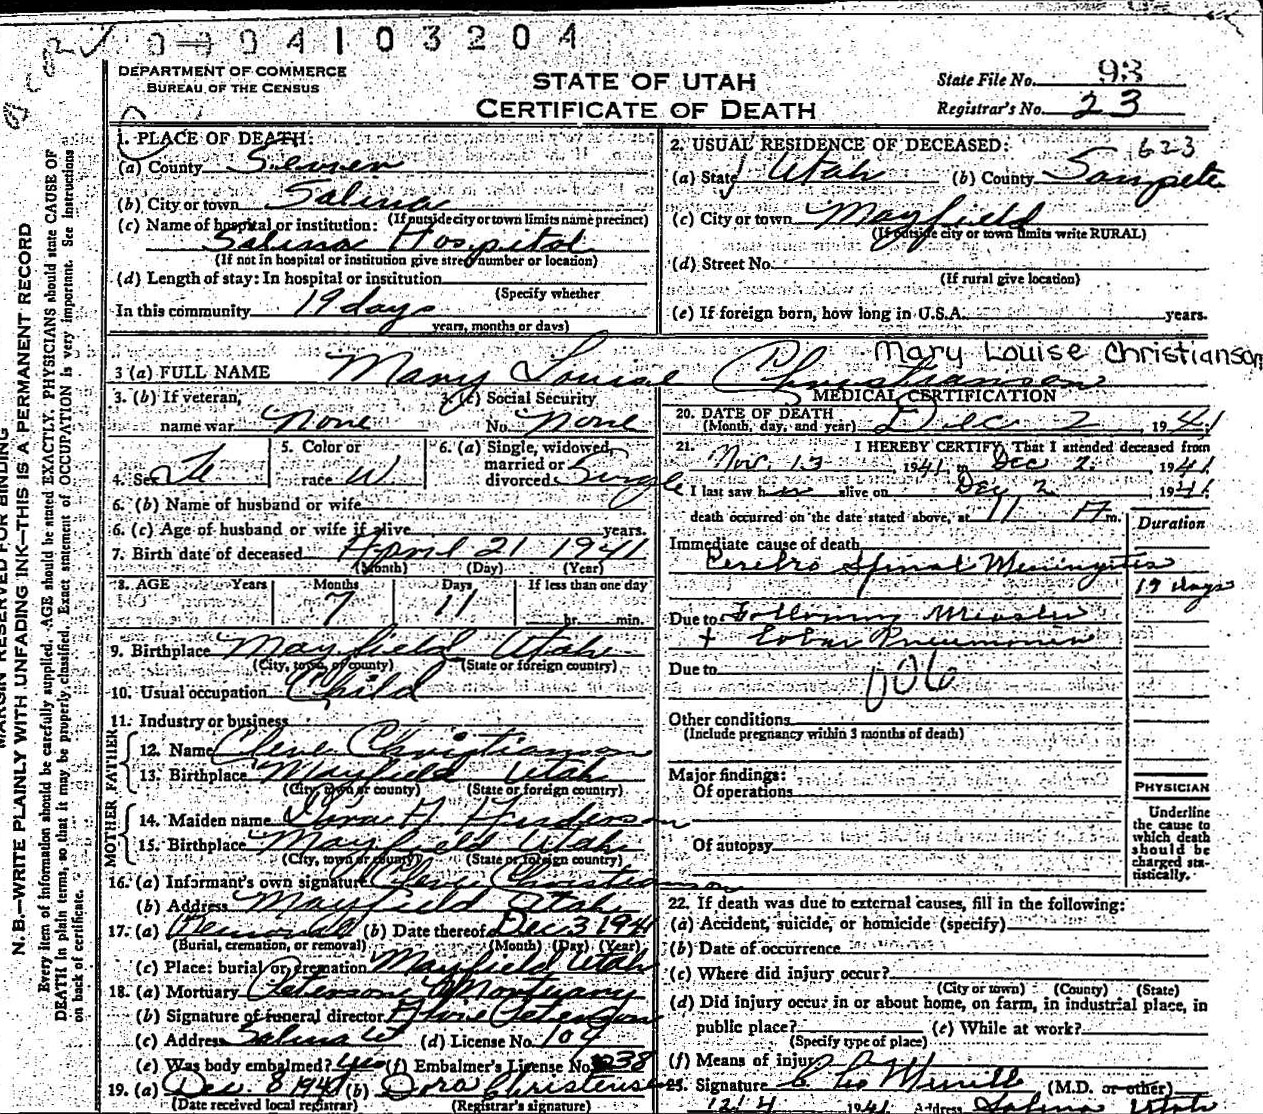 0-0 04103204
DEPARTMENT OF COMMERCE
BUREAU OF THE CENSUS
STATE OF UTAH
CERTIFICATE OF DEATH
State File No. 93
Registrar's No. 23
1. PLACE OF DEATH:
(a) County Sevier
(b) City or town Salina
(If outside city or town limits name precinct)
(c) Name of hospital or institution:
Salina Hospital
(If not in hospital or institution give street number or location)
(d) Length of stay: In hospital or institution
(Specify whether
In this community 19 days
years, months or days)
2. USUAL RESIDENCE OF DECEASED: 623
(a) State Utah (b) County Sanpete
(c) City or town Mayfield
(If outside city or town limits write RURAL)
(d) Street No.
(If rural give location)
(e) If foreign born, how long in U.S.A. years.
Mary Louise Christianson
3 (a) FULL NAME Mary Louise Christianson
3. (b) If veteran, name war None
3. (c) Social Security No. None
4. Sex Fe
5. Color or race W
6. (a) Single, widowed, married or divorced Single
6. (b) Name of husband or wife
6. (c) Age of husband or wife if alive years.
7. Birth date of deceased April 21 1941
(Month) (Day) (Year)
8. AGE Years Months Days If less than one day
7 11 hr. min.
9. Birthplace Mayfield Utah
(City, town, or county) (State or foreign country)
10. Usual occupation Child
11. Industry or business
FATHER
12. Name Cleve Christianson
13. Birthplace Mayfield Utah
(City, town or county) (State or foreign country)
MOTHER
14. Maiden name H.
15. Birthplace Mayfield Utah
(City, town or county) (State or foreign country)
16. (a) Informant's own signature Cleve Christianson
(b) Address Mayfield Utah
17. (a) Removal (b) Date thereof Dec 3 1941
(Burial, cremation, or removal) (Month) (Day) (Year)
(c) Place: burial or cremation Mayfield Utah
18. (a) Mortuary Peterson Mortuary
(b) Signature of funeral director Peterson
(c) Address Salina Ut (d) License No. 104
(e) Was body embalmed? yes (f) Embalmer's License No. 238
19. (a) Dec. 8 1941 (b) Dora Christensen
(Date received local registrar) (Registrar's signature)
MEDICAL CERTIFICATION
20. DATE OF DEATH
(Month, day, and year) Dec 2 1941
21. I HEREBY CERTIFY, That I attended deceased from
Nov. 13, 1941, to Dec 2, 1941
I last saw h alive on Dec 2 1941
death occurred on the date stated above, at 11 A m.
Duration
Immediate cause of death
Cerebro Spinal Meningitis
19 days
Due to Following Measles
+ Lobar Pneumonia
Due to
Other conditions
(Include pregnancy within 3 months of death)
Major findings:
Of operations
Of autopsy
PHYSICIAN
Underline
the cause to
which death
should be
charged sta-
tistically.
22. If death was due to external causes, fill in the following:
(a) Accident, suicide, or homicide (specify)
(b) Date of occurrence
(c) Where did injury occur?
(City or town) (County) (State)
(d) Did injury occur in or about home, on farm, in industrial place, in
public place? (e) While at work?
(Specify type of place)
(f) Means of injury
Signature Merrill (M.D. or other)
12/4 1941 Address Salina Utah
MARGIN RESERVED FOR BINDING
N. B.—WRITE PLAINLY WITH UNFADING INK—THIS IS A PERMANENT RECORD
Every item of information should be carefully supplied. AGE should be stated EXACTLY. PHYSICIANS should state CAUSE OF
DEATH in plain terms, so that it may be properly classified. Exact statement of OCCUPATION is very important. See instructions
on back of certificate.